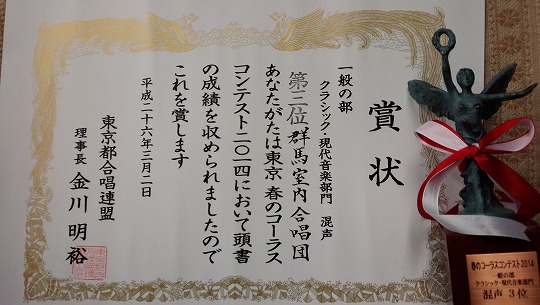 賞状
一般の部
クラシック・現代音楽部門 混声
第三位 群馬室内合唱団
あなたがたは東京 春のコーラス
コンテスト二〇一四において頭書
の成績を収められましたので
これを賞します
平成二十六年三月二日
東京都合唱連盟
理事長 金川明裕
春のコーラスコンテスト2014
一般の部
クラシック・現代音楽部門
混声 3位